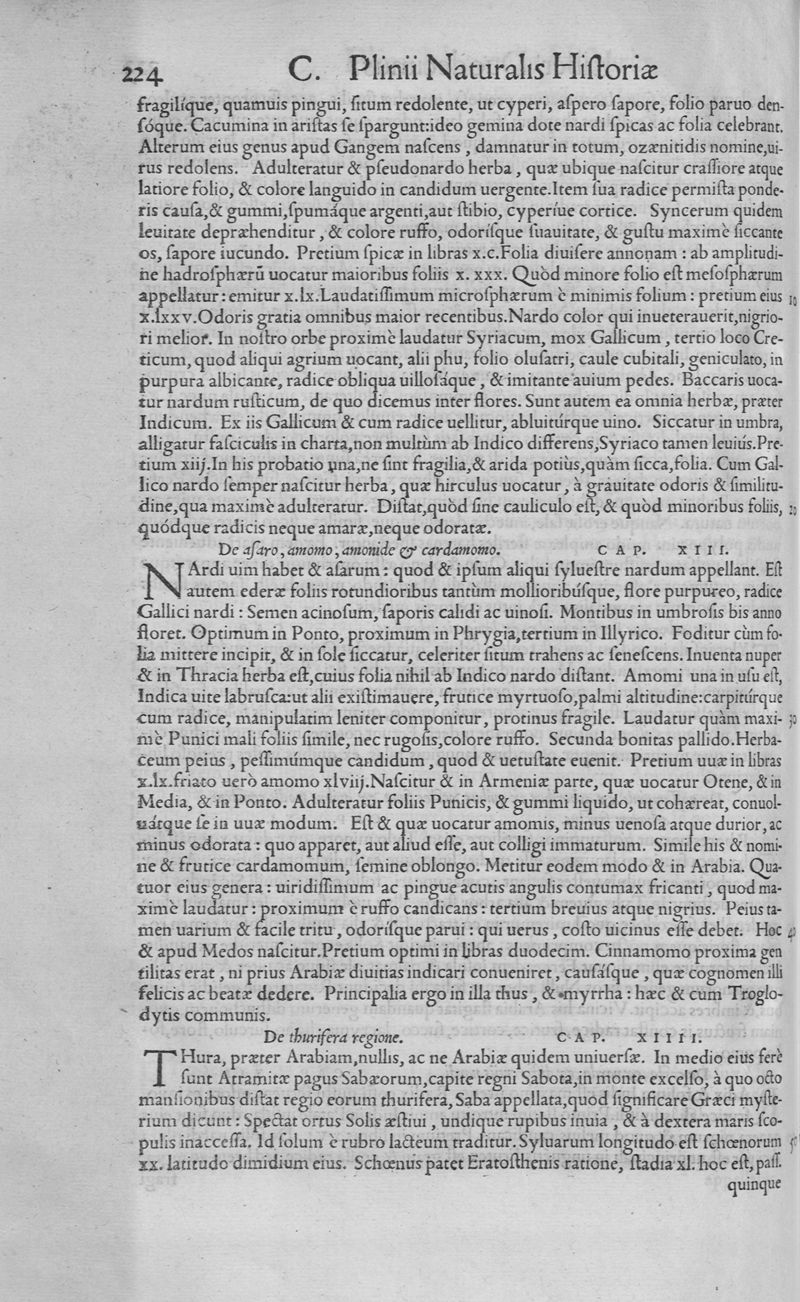 224 C. Plinii Naturalis Hiſtoriæ
fragilíque, quamuis pingui, ſitum redolente, ut cyperi, aſpero ſapore, folio paruo den-
ſóque. Cacumina in ariſtas ſe ſpargunt:ideo gemina dote nardi ſpicas ac folia celebrant.
Alterum eius genus apud Gangem naſcens, damnatur in totum, ozænitidis nomine,ui-
rus redolens. Adulteratur & pſeudonardo herba, quæ ubique naſcitur craſſiore atque
latiore folio, & colore languido in candidum uergente.Item ſua radice permiſta ponde-
ris cauſa,& gummi,ſpumáque argenti,aut ſtibio, cyperíue cortice. Syncerum quidem
leuitate depræhenditur, & colore ruffo, odoríſque ſuauitate, & guſtu maximè ſiccante
os, ſapore iucundo. Pretium ſpicæ in libras x.c.Folia diuiſere annonam : ab amplitudi-
ne hadroſphærū uocatur maioribus foliis x. xxx. Quòd minore folio eſt meſoſphærum
appellatur: emitur x.lx.Laudatiſſimum microſphærum è minimis folium : pretium eius 10
x.lxxv.Odoris gratia omnibus maior recentibus.Nardo color qui inueterauerit,nigrio-
ri melior. In noſtro orbe proximè laudatur Syriacum, mox Gallicum, tertio loco Cre-
ticum, quod aliqui agrium uocant, alii phu, folio oluſatri, caule cubitali, geniculato, in
purpura albicante, radice obliqua uilloſáque, & imitante auium pedes. Baccaris uoca-
tur nardum ruſticum, de quo dicemus inter flores. Sunt autem ea omnia herbæ, præter
Indicum. Ex iis Gallicum & cum radice uellitur, abluitúrque uino. Siccatur in umbra,
alligatur faſciculis in charta,non multùm ab Indico differens,Syriaco tamen leuiús.Pre-
tium xiij.In his probatio una,ne ſint fragilia,& arida potiùs,quàm ſicca,folia. Cum Gal-
lico nardo ſemper naſcitur herba, quæ hirculus uocatur, à grauitate odoris & ſimilitu-
dine,qua maximè adulteratur. Diſtat,quòd ſine cauliculo eſt, & quòd minoribus foliis, 20
quódque radicis neque amaræ,neque odoratæ.
De aſaro, amomo, amonide & cardamomo. CAP. XIII.
NArdi uim habet & aſarum : quod & ipſum aliqui ſylueſtre nardum appellant. Eſt
autem ederæ foliis rotundioribus tantùm mollioribúſque, flore purpureo, radice
Gallici nardi : Semen acinoſum, ſaporis calidi ac uinoſi. Montibus in umbroſis bis anno
floret. Optimum in Ponto, proximum in Phrygia,tertium in Illyrico. Foditur cùm fo-
lia mittere incipit, & in ſole ſiccatur, celeriter ſitum trahens ac ſeneſcens. Inuenta nuper
& in Thracia herba eſt,cuius folia nihil ab Indico nardo diſtant. Amomi uua in uſu eſt,
Indica uite labruſca:ut alii exiſtimauere, frutice myrtuoſo,palmi altitudine:carpitúrque
cum radice, manipulatim leniter componitur, protinus fragile. Laudatur quàm maxi- 30
mè Punici mali foliis ſimile, nec rugoſis,colore ruffo. Secunda bonitas pallido.Herba-
ceum peius, peſſimúmque candidum, quod & uetuſtate euenit. Pretium uuæ in libras
x.lx.friato uerò amomo xlviij.Naſcitur & in Armeniæ parte, quæ uocatur Otene, & in
Media, & in Ponto. Adulteratur foliis Punicis, & gummi liquido, ut cohæreat, conuol-
uátque ſe in uuæ modum. Eſt & quæ uocatur amomis, minus uenoſa atque durior, ac
minus odorata : quo apparet, aut aliud eſſe, aut colligi immaturum. Simile his & nomi-
ne & frutice cardamomum, ſemine oblongo. Metitur eodem modo & in Arabia. Qua-
tuor eius genera : uiridiſſimum ac pingue acutis angulis contumax fricanti, quod ma-
ximè laudatur : proximum è ruffo candicans : tertium breuius atque nigrius. Peius ta-
men uarium & facile tritu, odoríſque parui : qui uerus, coſto uicinus eſſe debet. Hoc 40
& apud Medos naſcitur.Pretium optimi in libras duodecim. Cinnamomo proxima gen
tilitas erat, ni prius Arabiæ diuitias indicari conueniret, cauſáſque, quæ cognomen illi
felicis ac beatæ dedere. Principalia ergo in illa thus, & myrrha : hæc & cum Troglo-
dytis communis.
De thurifera regione. CAP. XIIII.
THura, præter Arabiam,nullis, ac ne Arabiæ quidem uniuerſæ. In medio eius ferè
ſunt Atramitæ pagus Sabæorum,capite regni Sabota,in monte excelſo, à quo octo
manſionibus diſtat regio eorum thurifera, Saba appellata,quod ſignificare Græci myſte-
rium dicunt : Spectat ortus Solis æſtiui, undique rupibus inuia, & à dextera maris ſco-
pulis inacceſſa. Id ſolum è rubro lacteum traditur. Syluarum longitudo eſt ſchœnorum
xx. latitudo dimidium eius. Schœnus patet Eratoſthenis ratione, ſtadia xl. hoc eſt, paſſ.
quinque